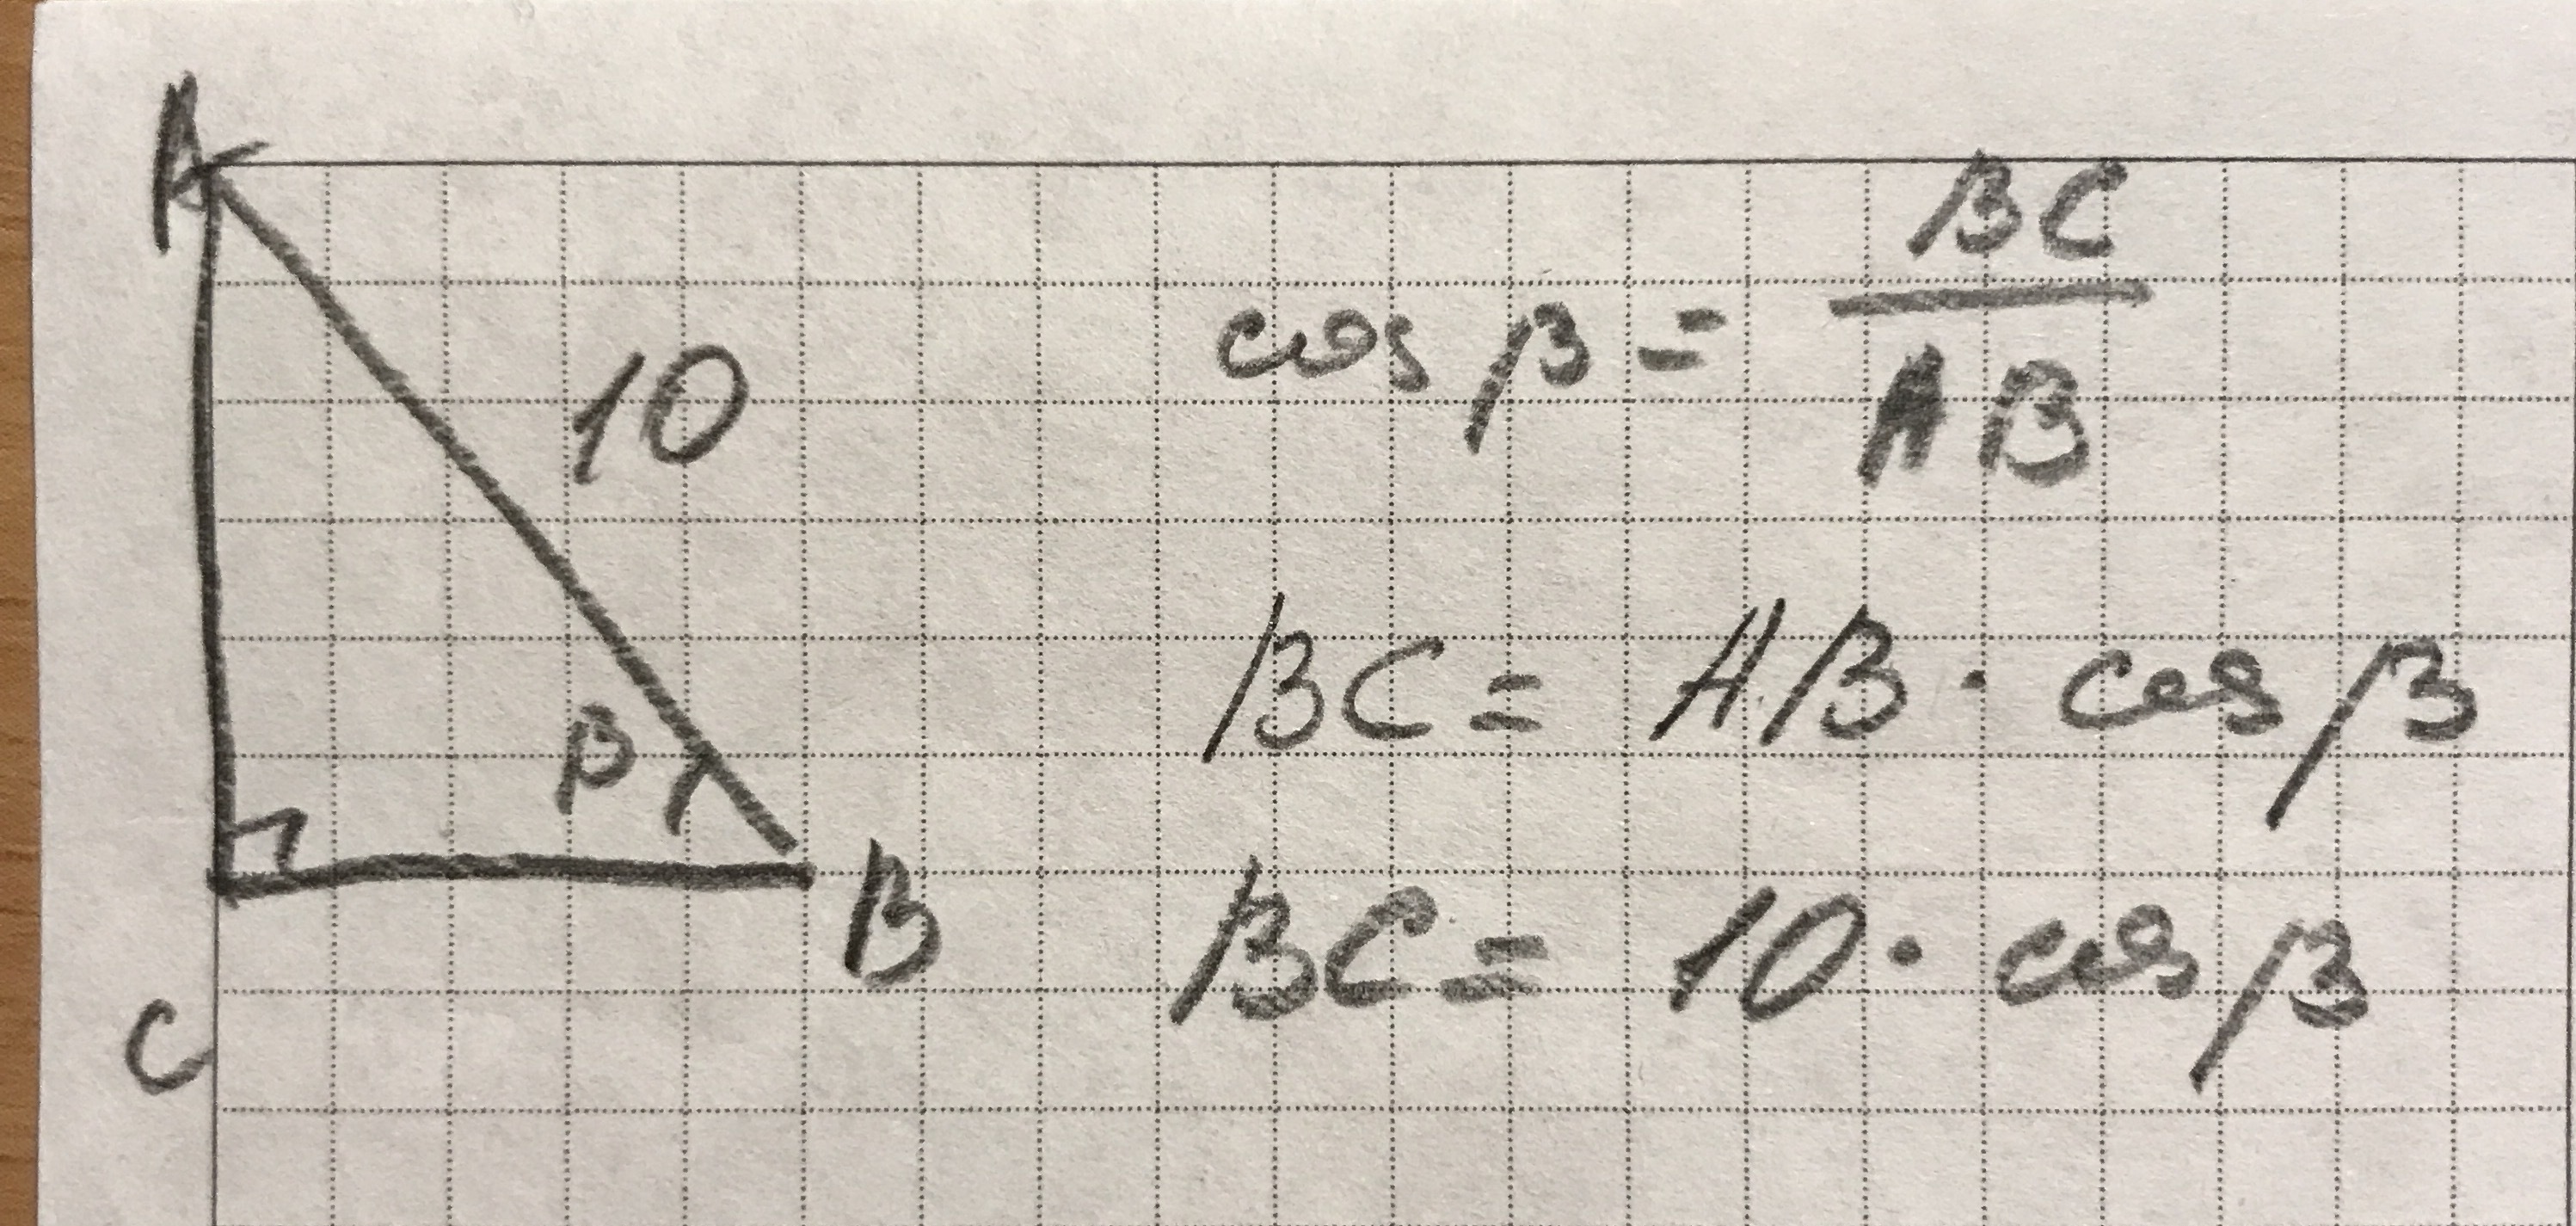 A
10
β
B
C
cos β = BC / AB
BC = AB · cos β
BC = 10 · cos β